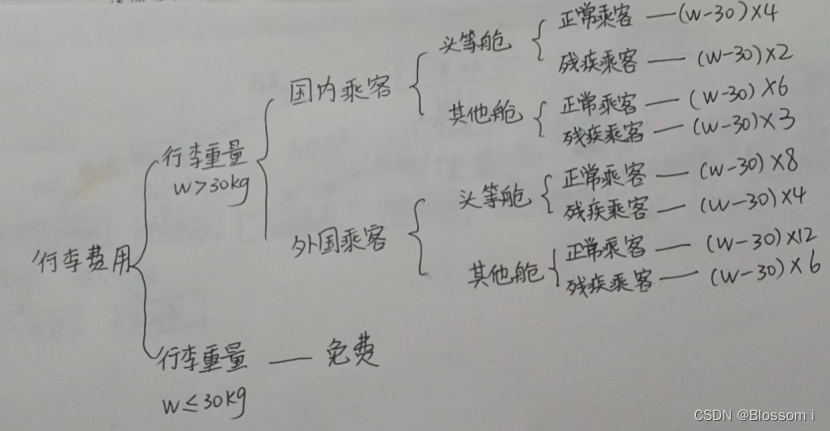 头等舱
正常乘客 —(w-30)×4
残疾乘客 — (w-30)×2
国内乘客
其他舱
正常乘客 — (w-30)×6
残疾乘客 — (w-30)×3
行李重量
w>30kg
头等舱
正常乘客 — (w-30)×8
残疾乘客 — (w-30)×4
外国乘客
其他舱
正常乘客 — (w-30)×12
残疾乘客 — (w-30)×6
行李费用
行李重量 — 免费
w≤30kg
CSDN @Blossom i